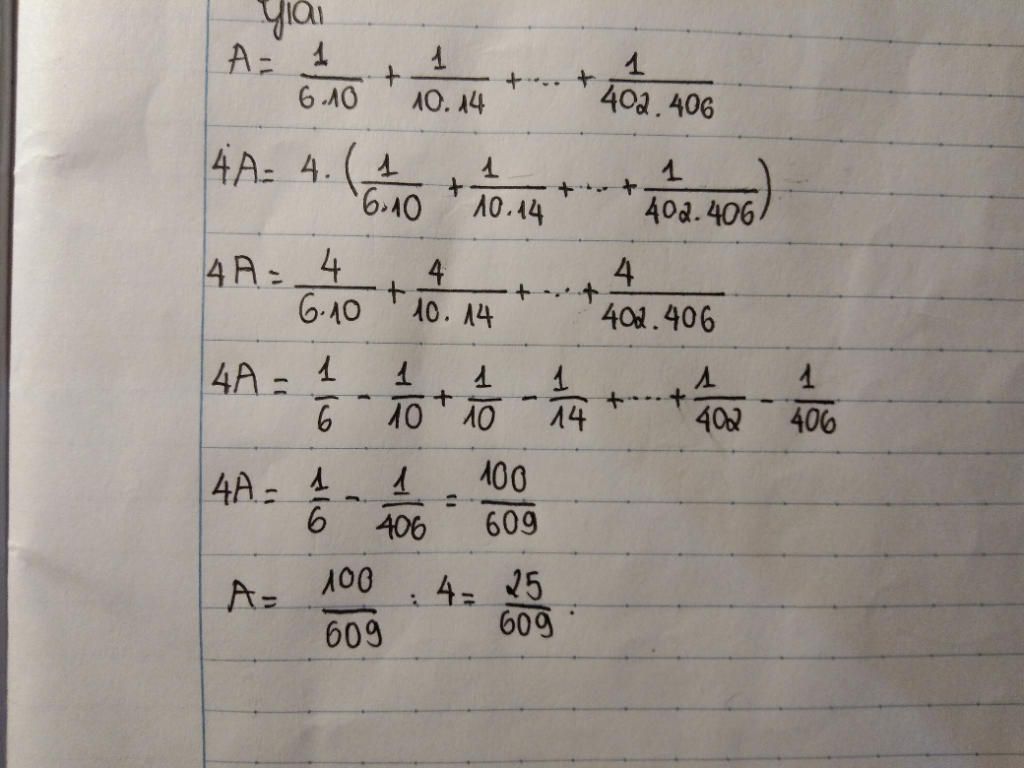 Giải
A = 1/6.10 + 1/10.14 + ... + 1/402.406
4A = 4. (1/6.10 + 1/10.14 + ... + 1/402.406)
4A = 4/6.10 + 4/10.14 + ... + 4/402.406
4A = 1/6 - 1/10 + 1/10 - 1/14 + ... + 1/402 - 1/406
4A = 1/6 - 1/406 = 100/609
A = 100/609 : 4 = 25/609.